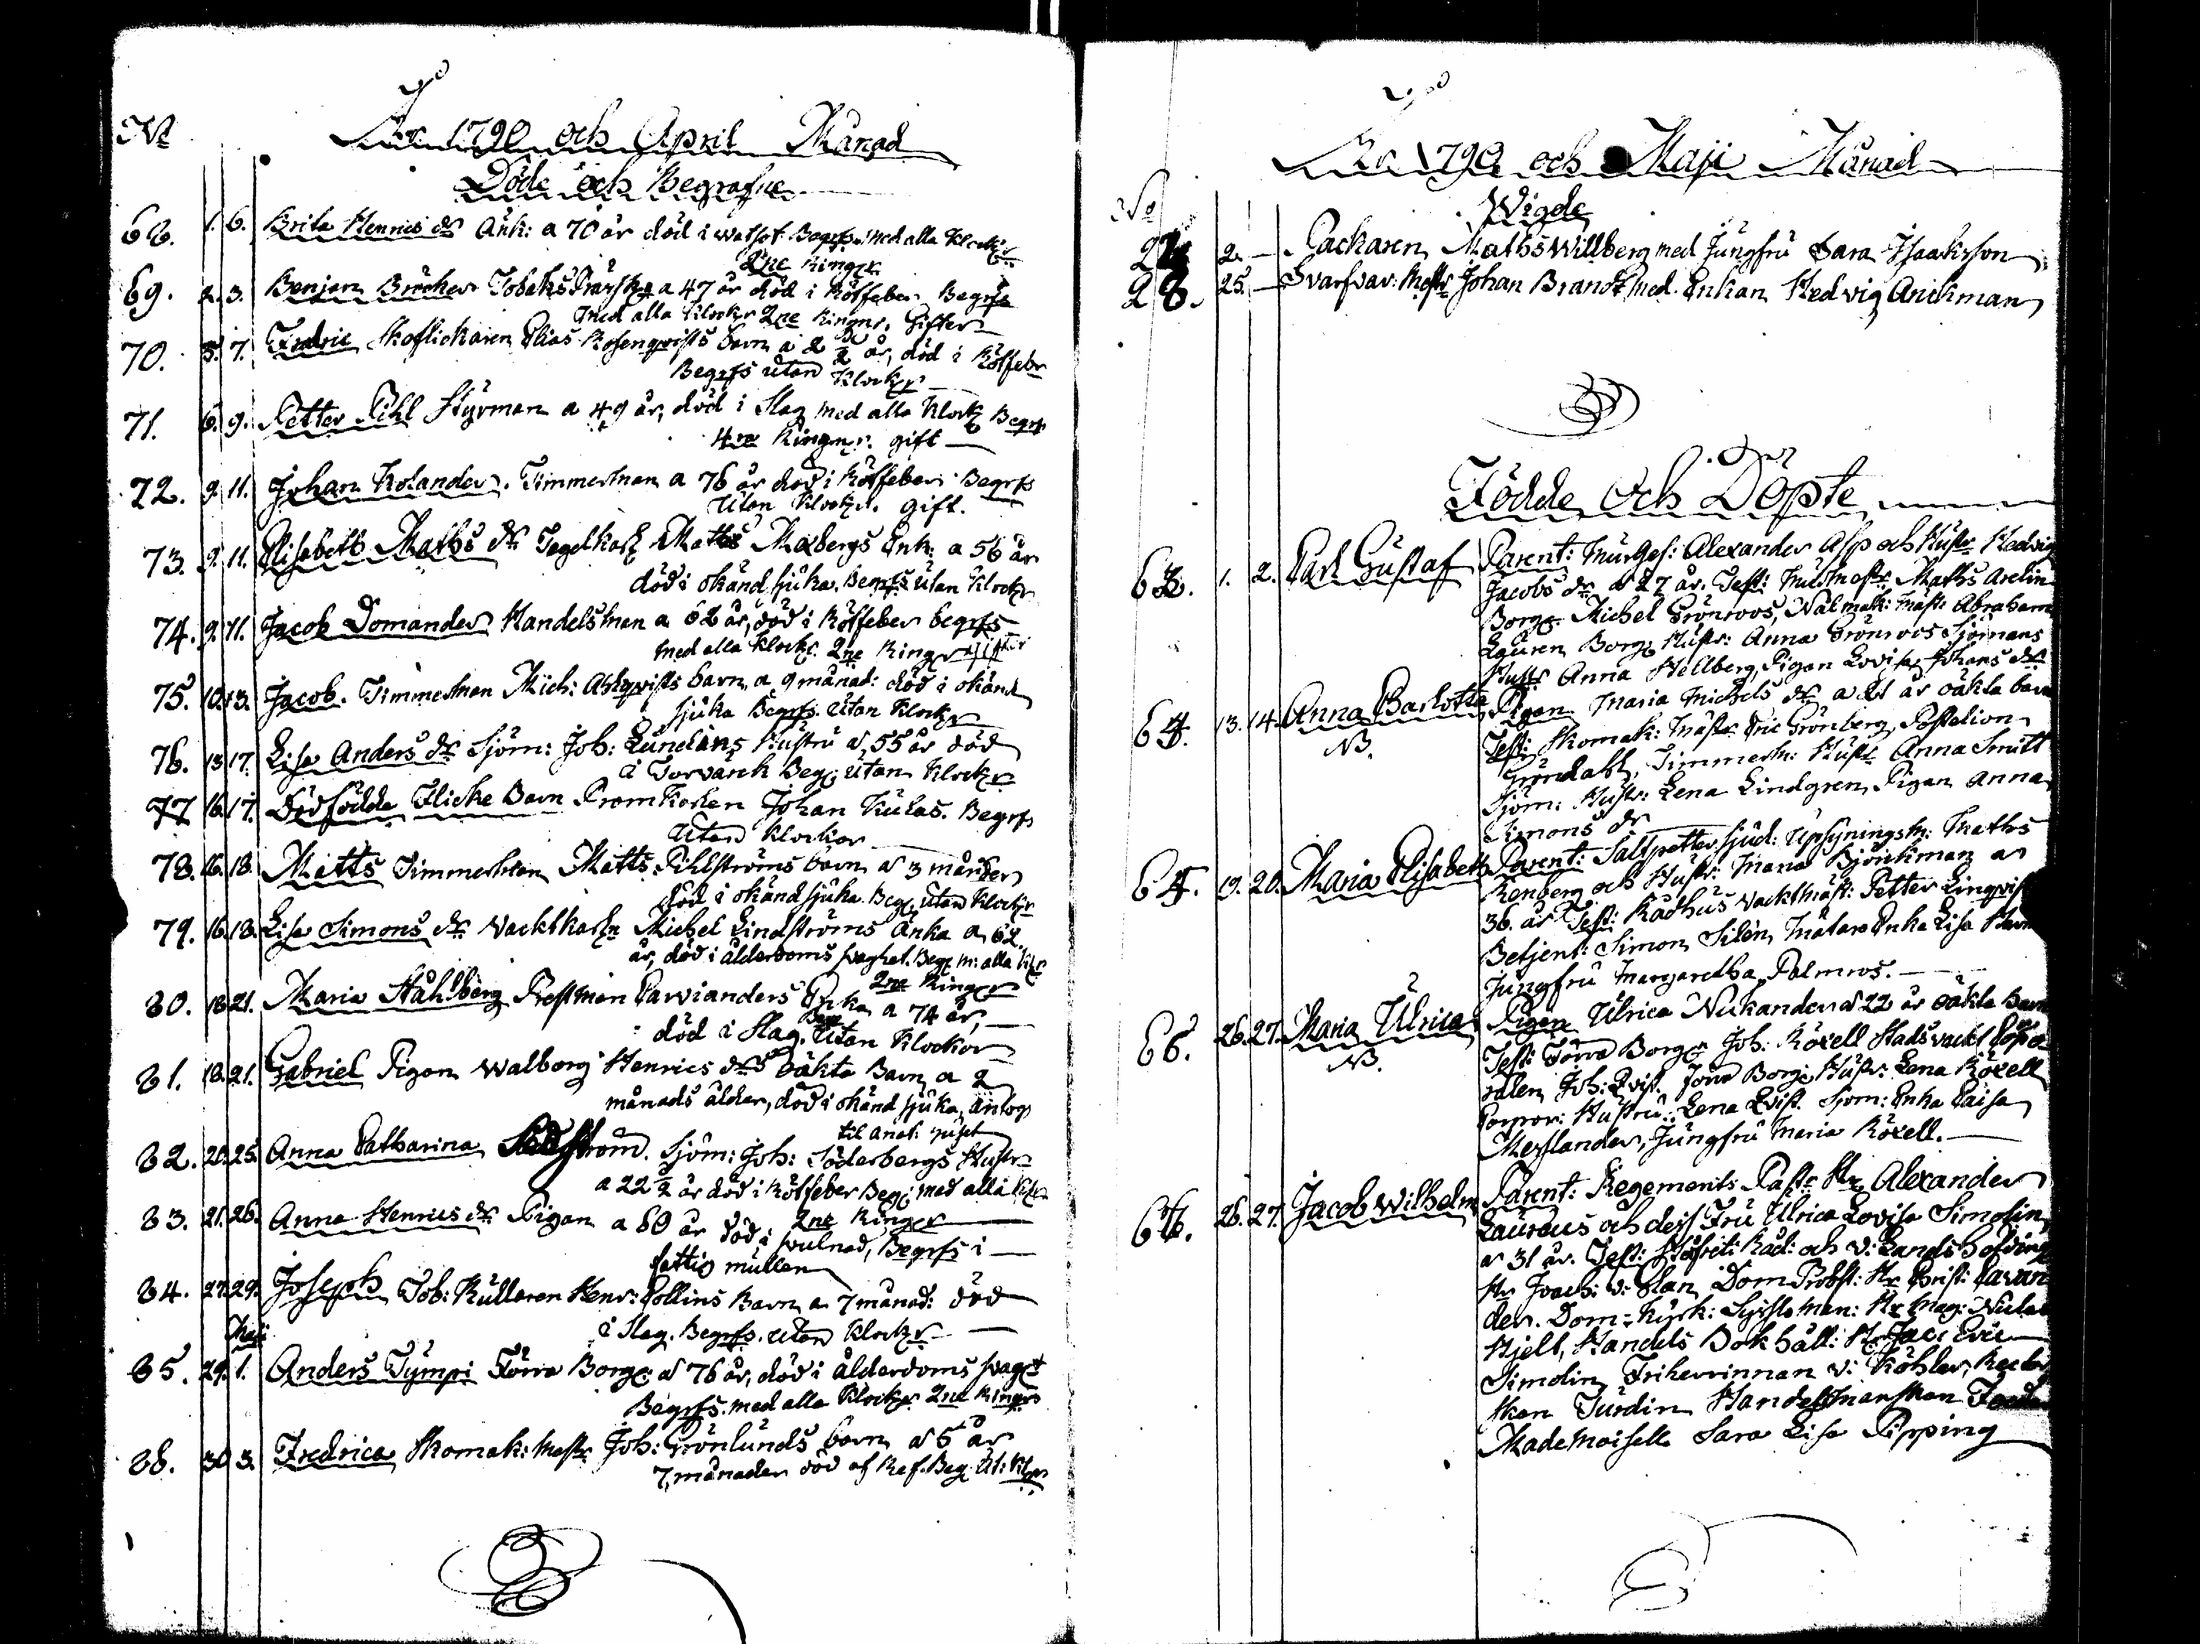 No
År 1790 och April Månad
Döde och Begrafne
68. 1. 6. Brita Henrics dr Änk: a 70 år död i watsot. Begrfs med alla Klockr
2ne Ringr
69. 2. 3. Benjam Bröcker Tobaks a 47 år död i Rötfeber Begrfs
med alla Klockr 2ne Ringnr. Gifter
70. 5. 7. Fredric Skoflickaren Elias Rosenqvists barn a 2 1/2 år, död i Rötfebr
Begrfs utan Klockr
71. 6. 9. Petter Pihl Styrman a 49 år, död i Slag med alla Klock Begrfs
4ra Ringnr. gift
72. 9. 11. Johan Kolander. Timmerman a 76 år död i Rötfeber Begrfs
Utan Klockr. gift.
73. 9. 11. Elisabeth Maths dr Tegelkarl Matts Moxbergs Enk: a 56 år
död i okänd sjuka. Begrfs utan Klockr
74. 9. 11. Jacob Domander Handelsman a 62 år, död i Rötfeber begrfs
med alla Klockr. 2ne Ringr gifter
75. 10. 13. Jacob. Timmerman Mich: Ahlqvists barn, a 9 månad: död i okänd
sjuka Begrfs. Utan Klockr
76. 13 17. Lisa Anders dr Sjöm: Joh: Lundäns Hustru a 55 år död
i Torrvärk Beg: utan Klockr
77 16. 17. Dödfödde Flicke Barn Johan Kulas. Begrfs
Utan Klockor
78. 16. 18. Matts Timmerman Matts Pihlströms barn a 3 månader
död i okänd sjuka. Beg: utan Klockr
79. 16. 18. Lisa Simons dr Vacktkarln Michel Lindströms änka a 62.
år, död i ålderdoms svaghet. Begr m: alla Kl:
2ne Ringr
80. 18 21. Maria Ståhlberg Prestman Carvianders Enka a 74 år,
död i Slag. Begr Utan Klockor
81. 18. 21. Gabriel Pigan Walborg Henrics drs oäkta Barn a 2
månads ålder, död i okänd sjuka, antogs
til Anat. huset
82. 20. 25. Anna Catharina Sjöm: Joh: Söderbergs Hustr
a 22 1/2 år död i Rötfeber Beg: med alla Klr
2ne Ringr
83. 21. 26. Anna Henrics dr Pigan a 80 år död i svulnad, Begrfs i
fattig mullen
84. 27. 29. Joseph Tob: Rullaren Henr: Collins Barn a 7 månad: död
i Slag. Begrfs. utan Klockr
Maji
85. 29. 1. Anders Tympi Förra Borg: a 76 år, död i ålderdoms svagt
Begrfs. med alla Klockr 2ne Ringr
86. 30 3. Fredrica Skomak: Mastr Joh: Grönlunds barn a 5 år
7. månader död af Ref. Beg: Ut: Klr
År 1790 och Maji Månad
No
Wigde
27 2. Packaren Maths Willberg med Jungfru Sara Isaakson
28. 25. Svarfvar: Mastr Johan Brandt med Enkan Hedvig Anckman
Födde och Döpte
63. 1. 2. Carl Gustaf Parent: Murges: Alexander Asp och Hustr Hedvig
Jacobs dr a 27 år. Test: Murmastr Maths Arelin
Borg: Michel Grönroos, Walmak: Mästr Abraham
Lauren Borg: Hustr: Anna Grönroos Sjömans
Hustr Anna Hellberg, Pigan Lovisa Johans dr
64. 13. 14. Anna Carlotta Pigan Maria Michels dr a 21 år oäkta barn
NB. Test: Skomak: Mästr Eric Grönberg, Postelion
Timmerm: Hustr Anna Smitt
Sjöm: Hustr: Lena Lindgren, Pigan Anna
Simons dr
65. 19. 20. Maria Elisabeth Parent: Saltpetter sjud: Upsyningsm: Maths
Renberg och Hustr: Maria Björckman a
36. år Test: Rådhus vacktmäst: Petter Lingvist
Betjent: Simon Silén, Mätare Enka Lisa
Jungfru Margaretha Palmros.
66. 26. 27. Maria Ulrica Pigan Ulrica Nukander a 22 år oäkta Barn
NB. Test: Förra Borgr Joh: Röxell Stadsvackt
ralen Joh: Qvist. förra Borg: Hustr: Lena Röxell
Corpor: Hustru: Lena Qvist. Sjöm: Enka Caisa
Meslander, Jungfru Maria Röxell.
67. 26. 27. Jacob Wilhelm Parent: Regements Pastr Hr Alexander
Lauræus och dess Fru Ulrica Lovisa Simolin
a 31 år. Test: Håfrett: Råd: och v: Landshöfding
Hr Joach: v: Glan, Dom Probst: Hr Christ: Cavian
der. Dom-Kyrk: Syssloman: Hr Mag: Niclas
Hjelt, Handels Bokhåll: Hr Jac: Eric
Simolin Friherrinnan v: Köhler, Rector
skan Turdin Handelsmanskan
Mademoiselle Sara Lisa Pipping